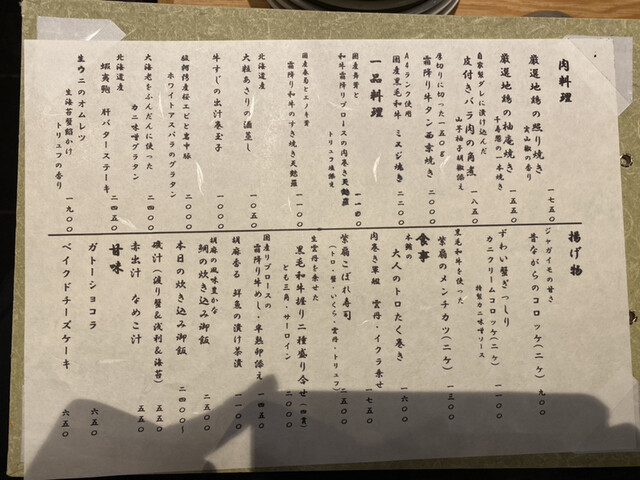 肉料理
厳選地鶏の照り焼き 一七五〇
実山椒の香り
厳選地鶏の柚庵焼き 一五五〇
千寿葱の一本焼き
自家製ダレに漬け込んだ
皮付きバラ肉の角煮 一八五〇
山芋柚子胡椒添え
厚切りに切った一五〇g
霜降り牛タン西京焼き 二〇〇〇
A4ランク使用
国産黒毛和牛 ミスジ焼き 二二〇〇
一品料理
国産舞茸と
和牛霜降りリブロースの肉巻き天麩羅 一一〇〇
トリュフ塩添え
国産春菊とエノキ茸
霜降り和牛のすき焼き天麩羅 一一〇〇
北海道産
大粒あさりの酒蒸し 一〇五〇
牛すじの出汁巻玉子 一〇〇〇
駿河湾産桜エビと寓中豚
ホワイトアスパラのグラタン 二〇〇〇
大海老をふんだんに使った
カニ味噌グラタン 二四〇〇
北海道産
蝦夷鮑 肝バターステーキ 二四五〇
生ウニのオムレツ 一九〇〇
生海苔蟹餡かけ
トリュフの香り
揚げ物
ジャガイモの甘さ
昔ながらのコロッケ(二ケ) 九〇〇
ずわい蟹ぎっしり
カニクリームコロッケ(二ケ) 一一〇〇
特製カニ味噌ソース
黒毛和牛を使った
紫扇のメンチカツ(二ケ) 一三〇〇
食事
本鮪の
大人のトロたく巻き 一六〇〇
肉巻き軍艦 雲丹・イクラ乗せ 一七五〇
紫扇こぼれ寿司 二五〇〇
(トロ・蟹・いくら・雲丹・トリュフ)
生雲丹を乗せた
黒毛和牛握り二種盛り合せ(四貫) 二〇〇〇
とも三角・サーロイン
国産リブロースの
霜降り牛めし・卓熟卵添え 一四五〇
胡麻香る 鮮魚の漬け茶漬 一一〇〇
胡麻の風味豊かな
鯛の炊き込み御飯 二五〇〇
本日の炊き込み御飯 二四〇〇〜
磯汁(渡り蟹&浅利&海苔) 五五〇
赤出汁 なめこ汁 五五〇
甘味
ガトーショコラ 六五〇
ベイクドチーズケーキ 六五〇